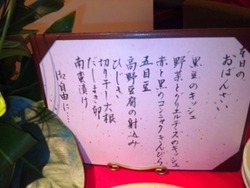 本日の
おばんざい
黒豆のキッシュ
野菜とヴィルチーズのキッシュ
赤と黒のコンニャクきんぴら
五目豆
高野豆腐の射込み
ひじき
切り干し大根
だしまき卵
南蛮漬け
ご自由に……